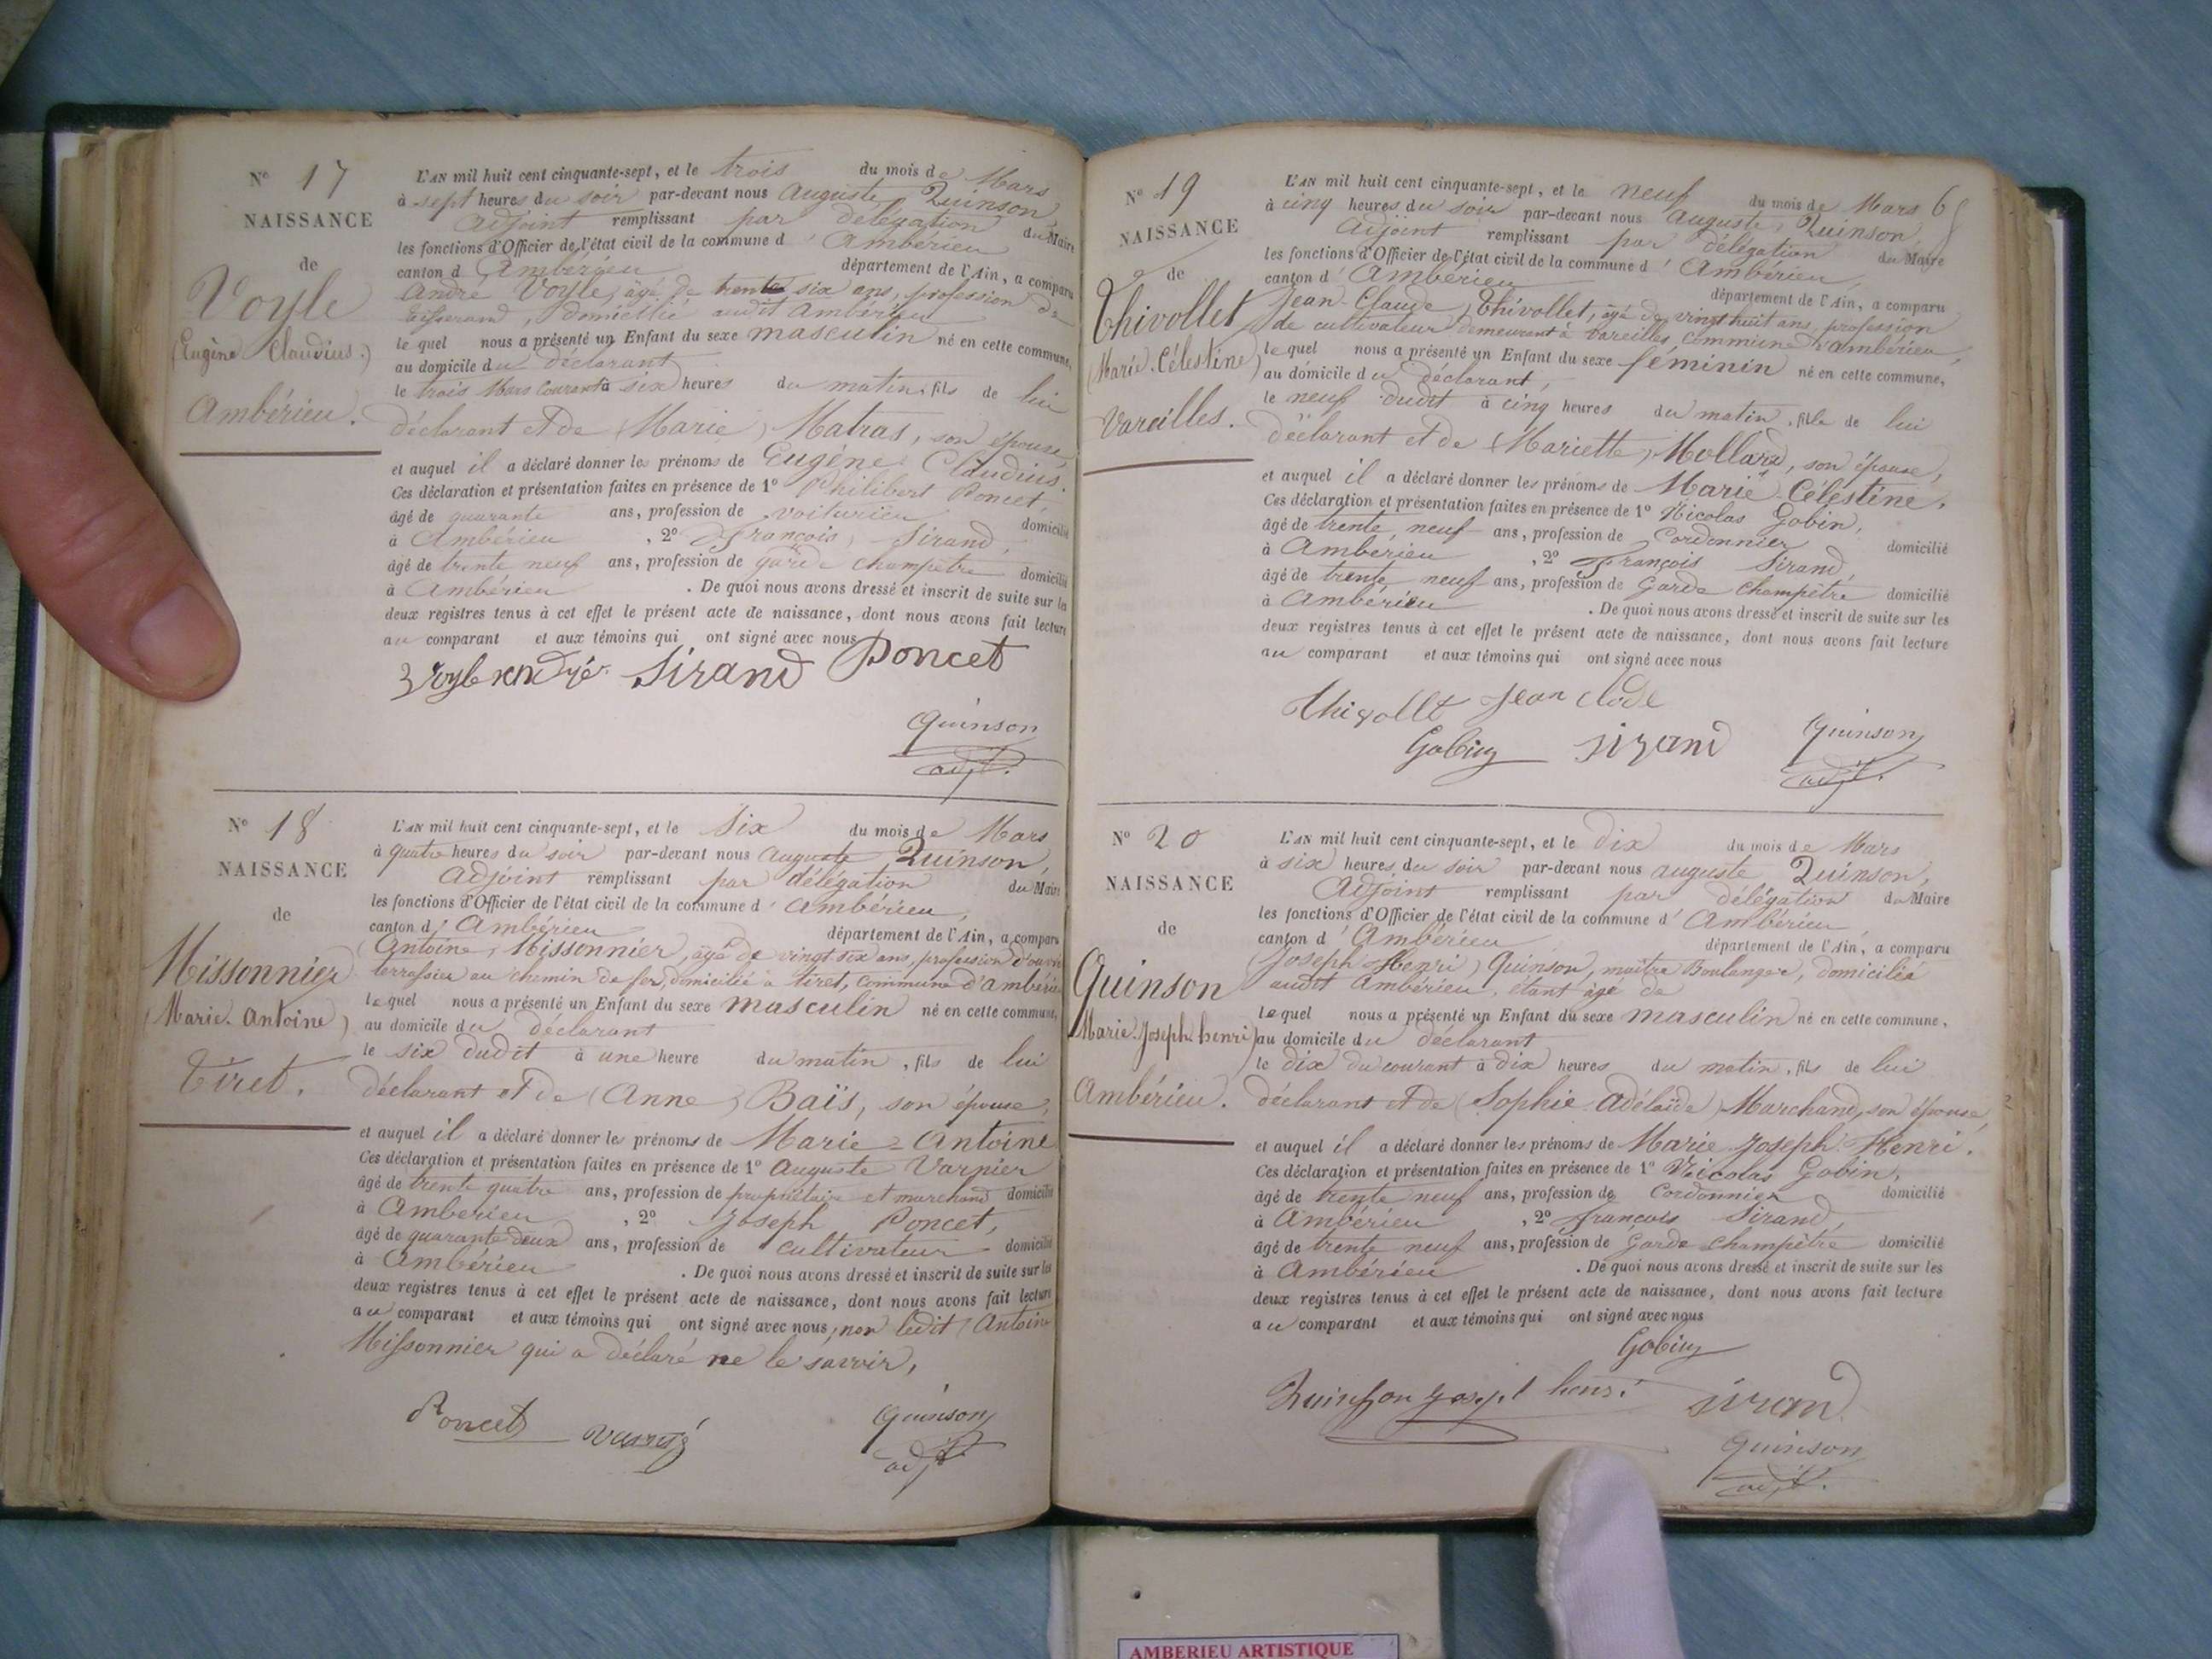 N° 17
NAISSANCE
de
Voyle
(Eugène Claudius.)
Ambérieu.
L'AN mil huit cent cinquante-sept, et le trois du mois de Mars
à sept heures du soir par-devant nous Auguste Quinson
Adjoint remplissant par délégation du Maire
les fonctions d'Officier de l'état civil de la commune d'Ambérieu
canton d'Ambérieu département de l'Ain, a comparu
André Voyle, âgé de trente six ans, profession de
tisserand, domicilié audit Ambérieu
lequel nous a présenté un Enfant du sexe masculin né en cette commune,
au domicile du déclarant
le trois Mars courant à six heures du matin, fils de lui
déclarant et de (Marie) Matras, son épouse
et auquel il a déclaré donner les prénoms de Eugène Claudius.
Ces déclaration et présentation faites en présence de 1° Philibert Poncet,
âgé de quarante ans, profession de voiturier domicilié
à Ambérieu, 2° François Sirand,
âgé de trente neuf ans, profession de garde champêtre domicilié
à Ambérieu. De quoi nous avons dressé et inscrit de suite sur les
deux registres tenus à cet effet le présent acte de naissance, dont nous avons fait lecture
au comparant et aux témoins qui ont signé avec nous
Sirand Poncet
Quinson
adjt.
N° 18
NAISSANCE
de
Missonnier
(Marie. Antoine)
Tiret.
L'AN mil huit cent cinquante-sept, et le six du mois de Mars
à quatre heures du soir par-devant nous Auguste Quinson,
Adjoint remplissant par délégation du Maire
les fonctions d'Officier de l'état civil de la commune d'Ambérieu,
canton d'Ambérieu département de l'Ain, a comparu
(Antoine) Missonnier, âgé de vingt six ans, profession d'
terrassier au chemin de fer, domicilié à tiret, commune d'Ambérieu
lequel nous a présenté un Enfant du sexe masculin né en cette commune,
au domicile du déclarant
le six dudit à une heure du matin, fils de lui
déclarant et de (Anne) Baïs, son épouse,
et auquel il a déclaré donner les prénoms de Marie=Antoine
Ces déclaration et présentation faites en présence de 1° Auguste Varnier
âgé de trente quatre ans, profession de propriétaire et marchand domicilié
à Amberieu, 2° Joseph Poncet,
âgé de quarante deux ans, profession de cultivateur domicilié
à Ambérieu. De quoi nous avons dressé et inscrit de suite sur les
deux registres tenus à cet effet le présent acte de naissance, dont nous avons fait lecture
au comparant et aux témoins qui ont signé avec nous, non ledit (Antoine
Missonnier qui a déclaré ne le savoir,
Poncet
Quinson
adjt
N° 19
NAISSANCE
de
Thivollet
(Marie. Célestine)
Vareilles.
L'AN mil huit cent cinquante-sept, et le neuf du mois de Mars
à cinq heures du soir par-devant nous Auguste Quinson
Adjoint remplissant par délégation du Maire
les fonctions d'Officier de l'état civil de la commune d'Ambérieu,
canton d'Ambérieu département de l'Ain, a comparu
Jean-Claude Thivollet, âgé de vingt huit ans, profession
de cultivateur demeurant à Vareilles, commune d'Ambérieu,
lequel nous a présenté un Enfant du sexe féminin né en cette commune,
au domicile du déclarant,
le neuf dudit à cinq heures du matin, fille de lui
déclarant et de (Mariette) Mollard, son épouse,
et auquel il a déclaré donner les prénoms de Marie-Célestine.
Ces déclaration et présentation faites en présence de 1° Nicolas Gobin,
âgé de trente neuf ans, profession de Cordonnier domicilié
à Ambérieu, 2° François Sirand,
âgé de trente neuf ans, profession de Garde Champêtre domicilié
à Ambérieu. De quoi nous avons dressé et inscrit de suite sur les
deux registres tenus à cet effet le présent acte de naissance, dont nous avons fait lecture
au comparant et aux témoins qui ont signé avec nous
Thivollet Jean Clode
Gobin Sirand Quinson
adjt.
N° 20
NAISSANCE
de
Quinson
(Marie. Joseph. henri)
Ambérieu.
L'AN mil huit cent cinquante-sept, et le dix du mois de Mars
à six heures du soir par-devant nous auguste Quinson,
Adjoint remplissant par délégation du Maire
les fonctions d'Officier de l'état civil de la commune d'Ambérieu,
canton d'Ambérieu département de l'Ain, a comparu
(Joseph Henri) Quinson, maître Boulanger, domicilié
audit Ambérieu, étant âgé de
lequel nous a présenté un Enfant du sexe masculin né en cette commune,
au domicile du déclarant
le dix du courant à dix heures du matin, fils de lui
déclarant et de (Sophie-Adélaïde) Marchand, son épouse
et auquel il a déclaré donner les prénoms de Marie-Joseph-Henri.
Ces déclaration et présentation faites en présence de 1° Nicolas Gobin,
âgé de trente neuf ans, profession de Cordonnier domicilié
à Ambérieu, 2° François Sirand,
âgé de trente neuf ans, profession de Garde champêtre domicilié
à Ambérieu. De quoi nous avons dressé et inscrit de suite sur les
deux registres tenus à cet effet le présent acte de naissance, dont nous avons fait lecture
au comparant et aux témoins qui ont signé avec nous
Gobin
Quinson Josept henri Sirand
Quinson
adjt.
AMBERIEU ARTISTIQUE